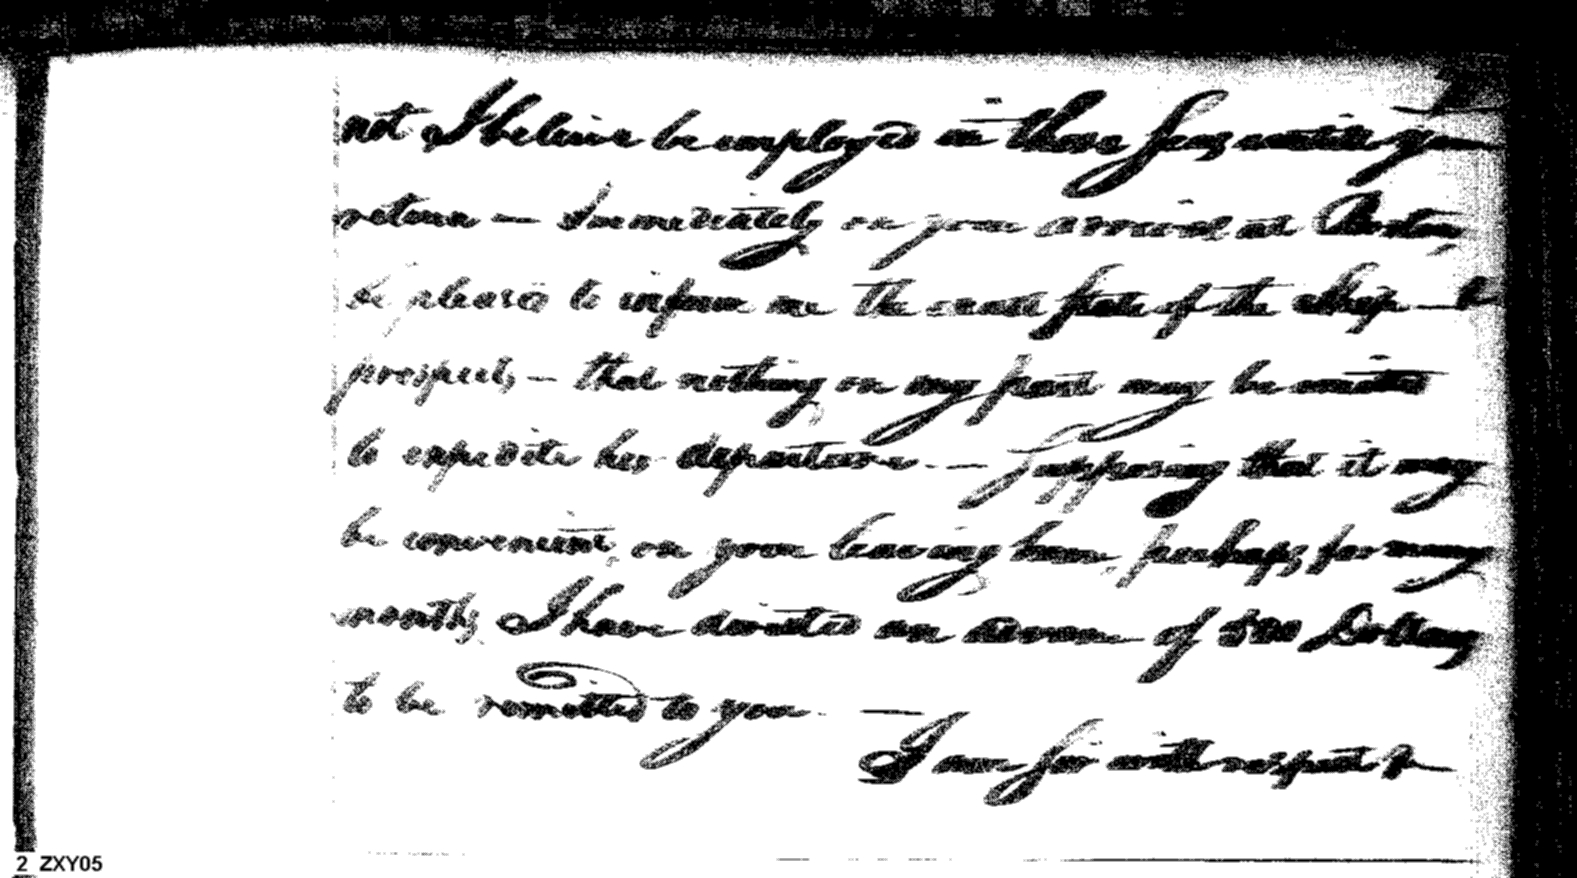 not I believe be employed in those Seas untill your
return — Immediately on your arrival at Boston,
be pleased to inform me the exact state of the Ship — &
prospects, — that nothing on my part may be omitted
to expedite her departure. — Supposing that it may
be convenient, on your leaving home, perhaps, for many
months, I have directed an advance of 500 Dollars
to be remitted to you. —
I am Sir with respect &c
2_ZXY05